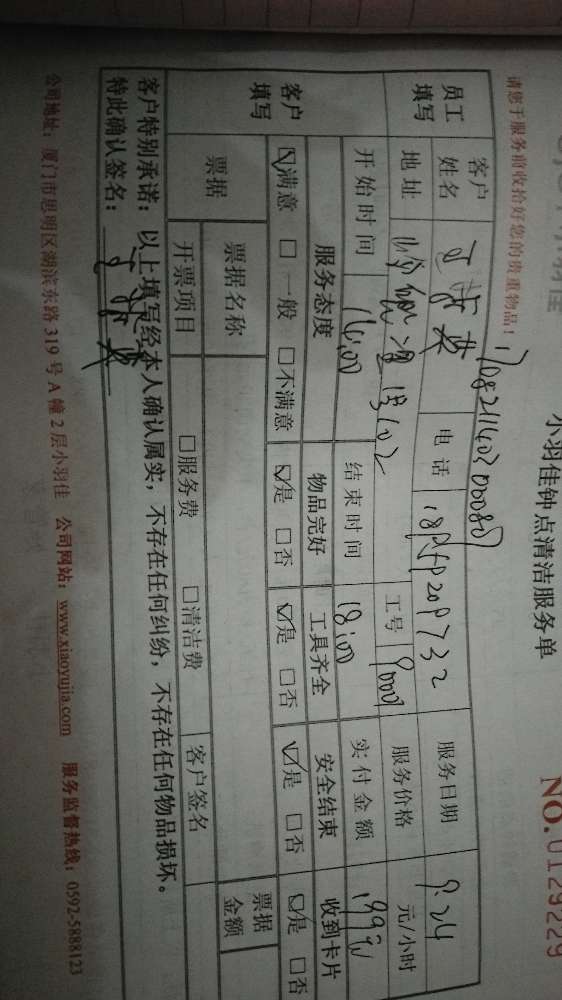 小羽佳钟点清洁服务单
NO.0129229
请您于服务前收拾好您的贵重物品！
员工填写 客户姓名 电话 服务日期 9.24
地址 工号 9000 服务价格 元/小时
开始时间 16:00 结束时间 18:00 实付金额 199元
客户填写 服务态度 物品完好 工具齐全 安全结束 收到卡片
☑满意 □一般 □不满意 ☑是 □否 ☑是 □否 ☑是 □否 ☑是 □否
票据 票据名称 票据金额
开票项目 □服务费 □清洁费 客户签名
客户特别承诺：以上填写经本人确认属实，不存在任何纠纷，不存在任何物品损坏。
特此确认签名：
公司地址：厦门市思明区湖滨东路 319 号 A 幢 2 层小羽佳 公司网站：www.xiaoyujia.com 服务监督热线：0592-5888123